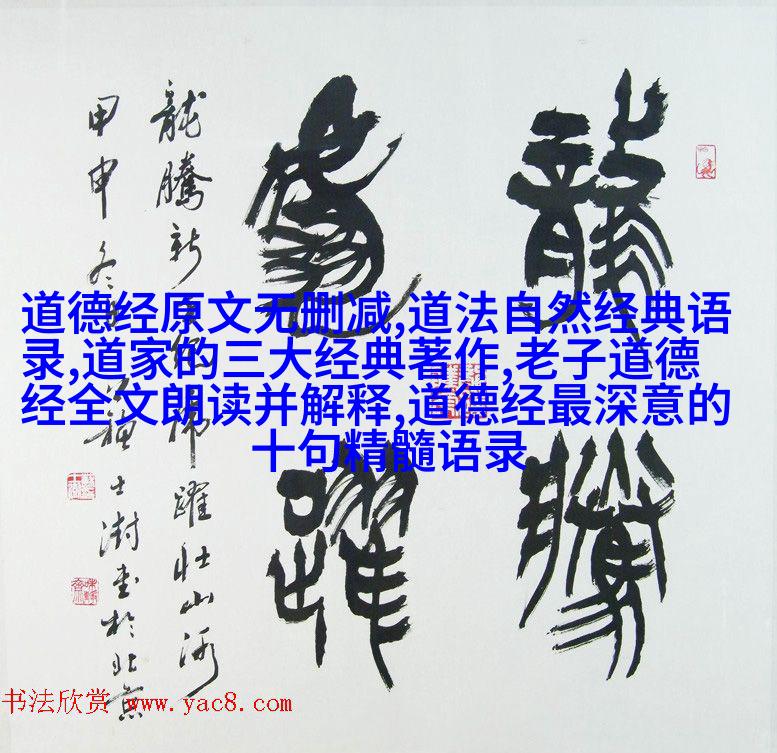 龍騰
虎躍
龍騰新
虎躍壯山河
甲申冬
士澍书於北京
道德经原文无删减,道法自然经典语
录,道家的三大经典著作,老子道德
经全文朗读并解释,道德经最深意的
十句精髓语录
书法欣赏 www.yac8.com